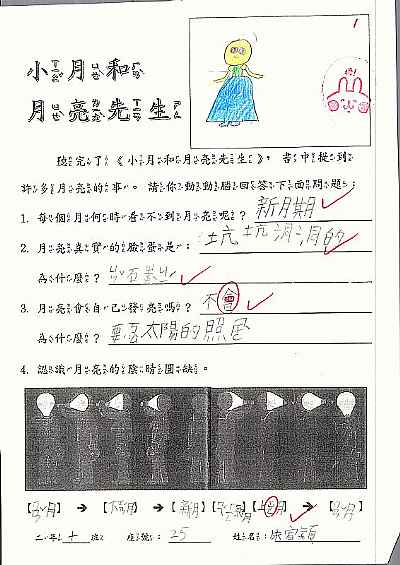 1
小月和
月亮先生
聽完了《小月和月亮先生》,書中提到
許多月亮的事。請你動動腦回答下面問題:
1. 每個月何時看不到月亮呢?新月期
2. 月亮真實的臉蛋是:坑坑洞洞的
為什麼?
3. 月亮會自己發亮嗎?不會
為什麼?要靠太陽的照
4. 認識月亮的陰晴圓缺。
【月】→【月】→【新月】【月】【上月】→【月】
二年十班 座號:25 姓名: